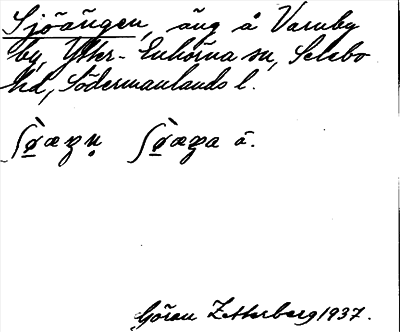 Sjöängen, äng å Varnby
by, Ytter-Enhörna sn, Selebo
hd, Södermanlands l.
a ä.
Göran Zetterberg 1937.